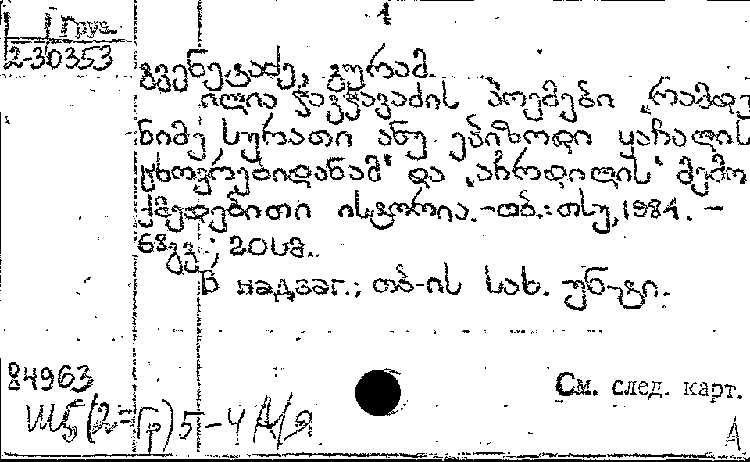 1
Груз.
2-30353
გვენეტაძე, გურამ.
ილია ჭავჭავაძის პოემები „რამდე-
ნიმე სურათი ანუ ეპიზოდი ყაჩაღის
ცხოვრებიდანამ" და „აჩრდილის" შემო
ქმედებითი ისტორია.-თბ.: თსუ, 1984. -
68გვ.; 20სმ.
В надзаг.: თბ-ის სახ. უნ-ტი.
84963
Ш5(2=Гр)5-4 А/я
См. след. карт.